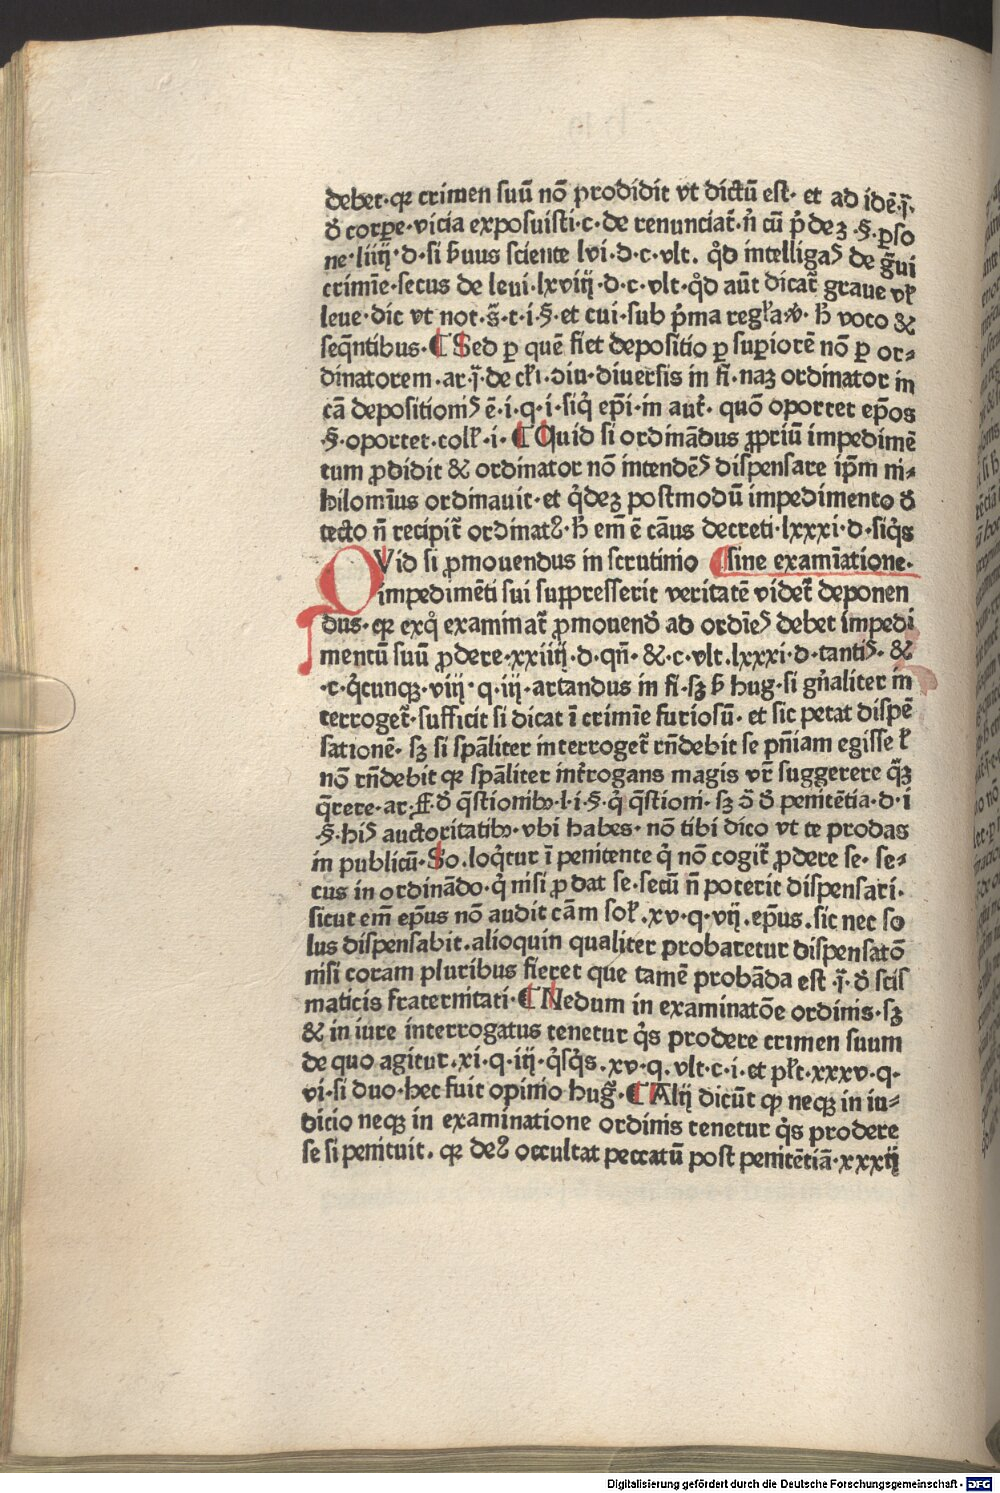 debet· qꝛ crimen suū nō prodidit vt dictū est· et ad idē·j̄·
ď corpe·vicia exposuisti·c·de renunciat̄·n̄ cū p̄ dez·§·ꝑso
ne·liiij·d·si ẜuus sciente lvi·d·c·vlt· qd̓ intelligaꝰ de g̃ui
crimīe·secus de leui·lxviij·d·c·vlt·qd̓ aūt dicat̄ graue vł
leue·dic vt not·s̄·t·i·§·et cui·sub p̄ma regła·ꝟ· ħ voco &
seq̄ntibus· ¶ Sed ꝑ quē fiet depositio ꝑ suꝑiorē nō ꝑ or⸗
dinatorem·ar·j̄·de cłi·diu·diuersis in fi·naꝫ ordinator in
cā depositionis ē·i·q·i·siq̓ ep̄i·in aut̄· quō oportet ep̄os
·§·oportet·coll̄·i· ¶ Quid si ordinādus ꝓpriū impedimē
tum ꝓdidit & ordinator nō intendēs dispensare ip̄m ni⸗
hilomīus ordinauit·et q̓dez postmodū impedimento ď
tecto n̄ recipit̄ ordinatꝰ·ħ em̄ ē cāus decreti·lxxxi·d·siq̓s
QVid si ꝓmouendus in scrutinio ¶ sine examīatione·
impedimēti sui suppresserit veritatē videt̄ deponen
dus· qꝛ exq̓ examinat̄ ꝓmouend̓ ad ordīes debet impedi
mentū suū ꝓdere·xxiiij·d·qn̄·&·c·vlt·lxxxi·d·tantis· &
·c·q̓cunqꝫ·viij·q·iij·artandus in fi·sꝫ ẜ hug·si gn̄aliter in
terroget̄·sufficit si dicat ī crimīe furiosū·et sic petat dispē
sationē· sꝫ si sp̄aliter interroget̄ rn̄debit se pn̄iam egisse ł
nō rn̄debit qꝛ sp̄aliter int̄rogans magis vr̄ suggerere q̄ꝫ
q̄rere·ar·ff·ď q̄stionibꝫ·l·i·§·q̓ q̄stioni· sꝫ ō ď penitētia·d·i
·§·his auctoritatibꝫ·vbi habes·nō tibi dico vt te prodas
in publicū· So·loq̓tur ī penitente q̓ nō cogit̄ ꝓdere se·se⸗
cus in ordinādo·q̓ nisi ꝓdat se·secū n̄ poterit dispensari·
sicut em̄ ep̄us nō audit cām soł·xv·q·vij·ep̄us·sic nec so
lus dispensabit·alioquin qualiter probaretur dispensatō
nisi coram pluribus fieret que tamē probāda est·j̄·ď scis
maticis fraternitati· ¶ Nedum in examinatōe ordinis·sꝫ
& in iure interrogatus tenetur q̓s prodere crimen suum
de quo agitur·xi·q·iij·q̓sq̓s·xv·q·vlt·c·i·et płt·xxxv·q·
vi·si duo·hec fuit opinio hug̃· ¶ Alij dicūt ꝙ neqꝫ in iu⸗
dicio neqꝫ in examinatione ordinis tenetur q̓s prodere
se si penituit· qꝛ deꝰ occultat peccatū post penitētiā·xxxij
Digitalisierung gefördert durch die Deutsche Forschungsgemeinschaft - DFG